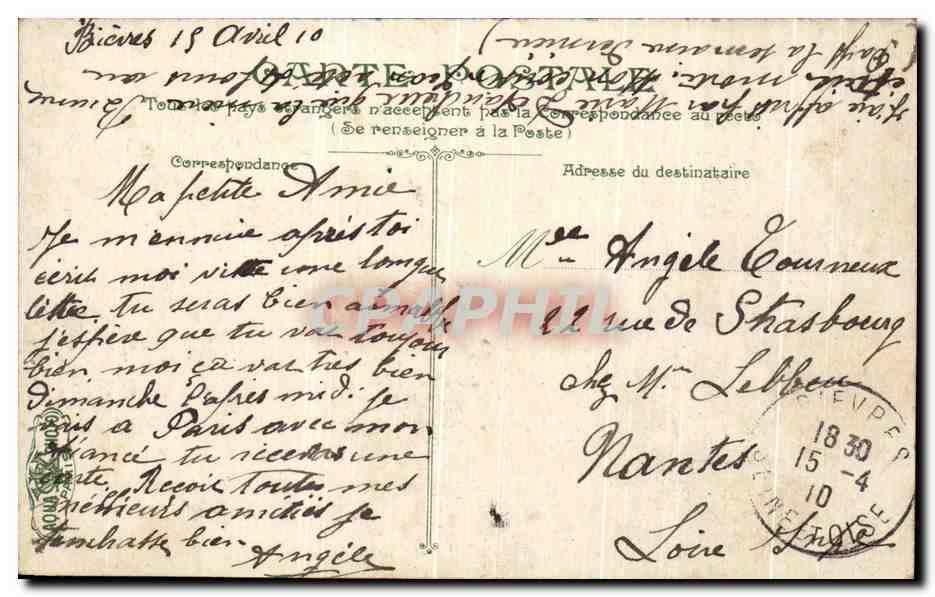 Bièvres 15 Avril 10
CARTE POSTALE
Tous les pays étrangers n'acceptent pas la Correspondance au recto
(Se renseigner à la Poste)
Correspondance
Ma petite Amie
Je m'ennuie après toi
écris moi vitte une longue
lettre tu seras bien aimable
j'espère que tu vas toujours
bien moi ça vas très bien
Dimanche l'après midi je
vais à Paris avec mon
fiancé tu receveras une
carte. Recoit toutes mes
meilleurs amitiés je
t'embrasse bien
Angèle
j'ai appris par Marie
Pays la semaine dernière)
Adresse du destinataire
Mlle Angèle Tourneux
22 rue de Strasbourg
chez Mme
Nantes
Loire Infre
BIEVRES
18 30
15 -4
10
SEINE ET OISE
CPAPHIL
AQUA PHOTO
PARIS